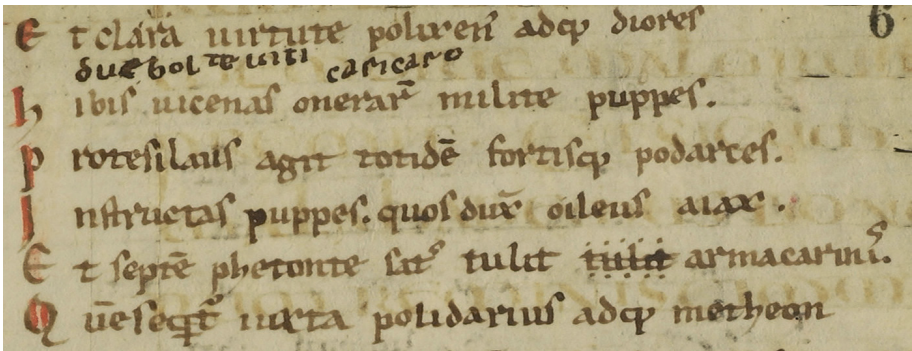 Et clara uirtute polixen̄ adqꝫ diores 6
due bolte uiti caricaro
hibis uicenas onerar̄ milite puppes.
Protesilaus agit totidē fortisqꝫ podarces.
Instructas puppes. quos dux̄ oileus aiax.
Et septē phetonte sat᾽ tulit tulit armacarinı᾽.
Quēseqͣt᾽ iuxta polidarius adqꝫ metheon